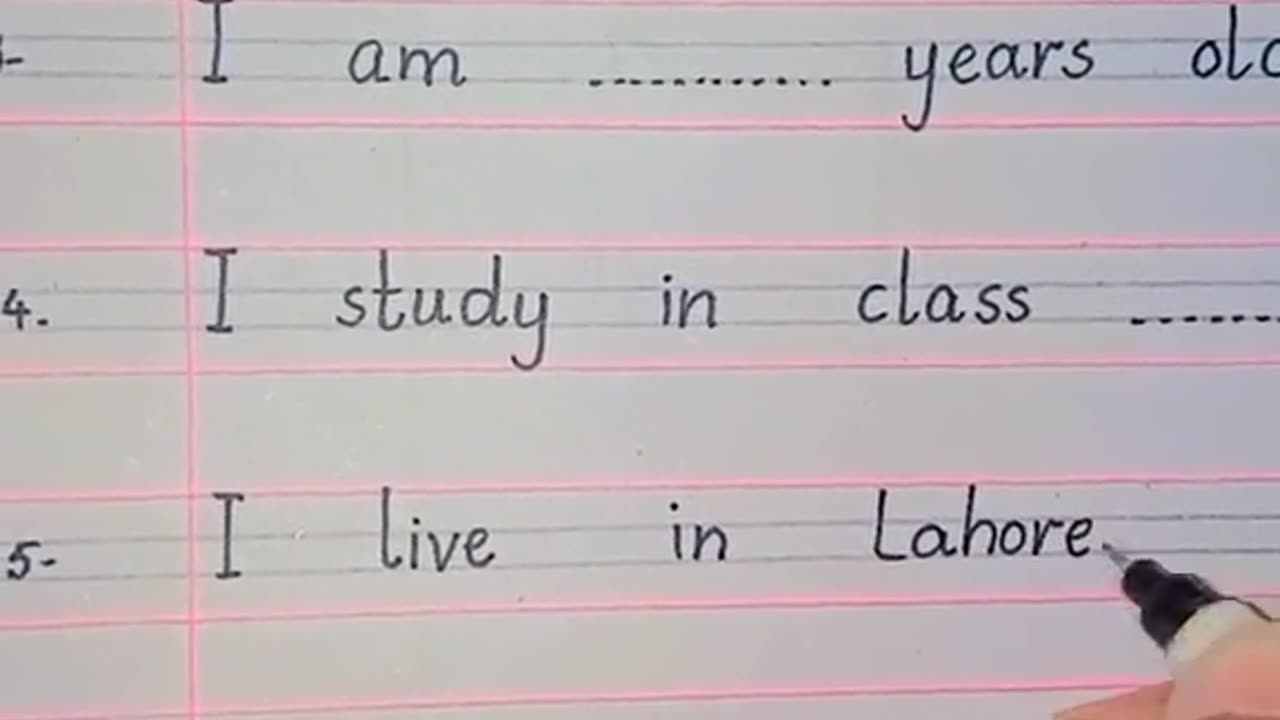 I am ............ years old
4. I study in class .......
5- I live in Lahore